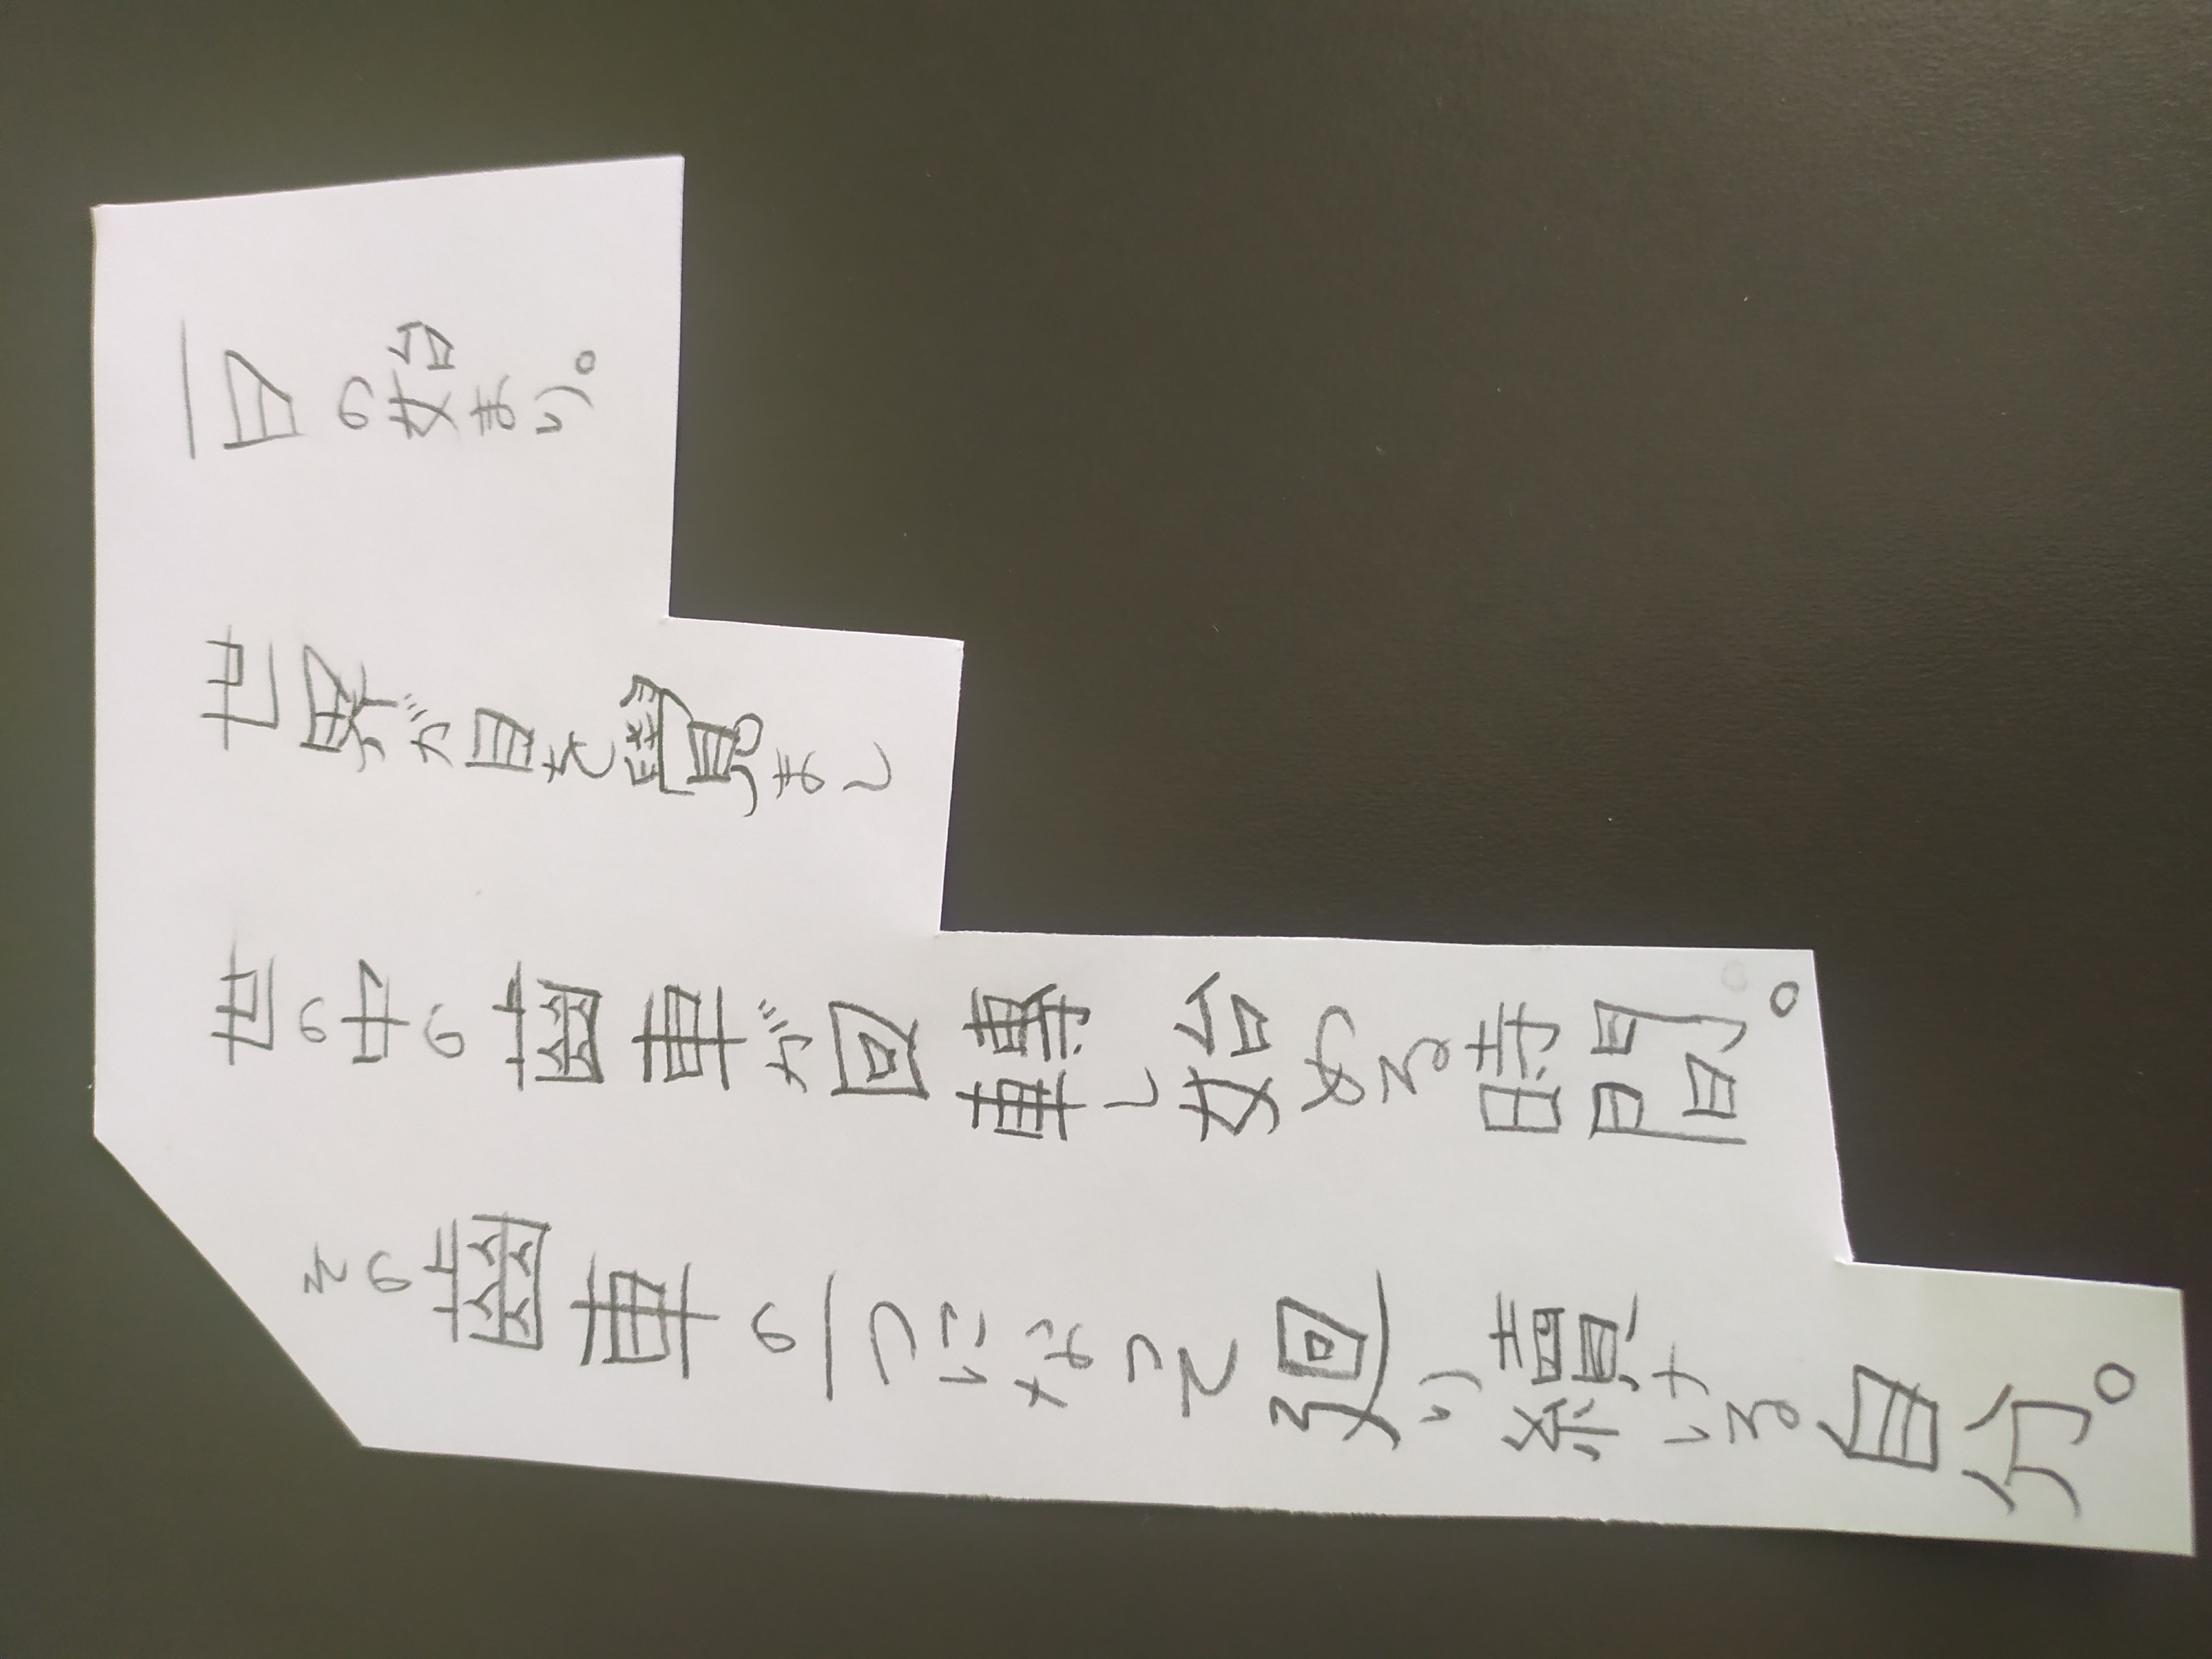 一日の始まり。
世界が目を覺まし
世の中の齒車が回轉し始める時間。
その齒車の一つになって廻り續ける自分。